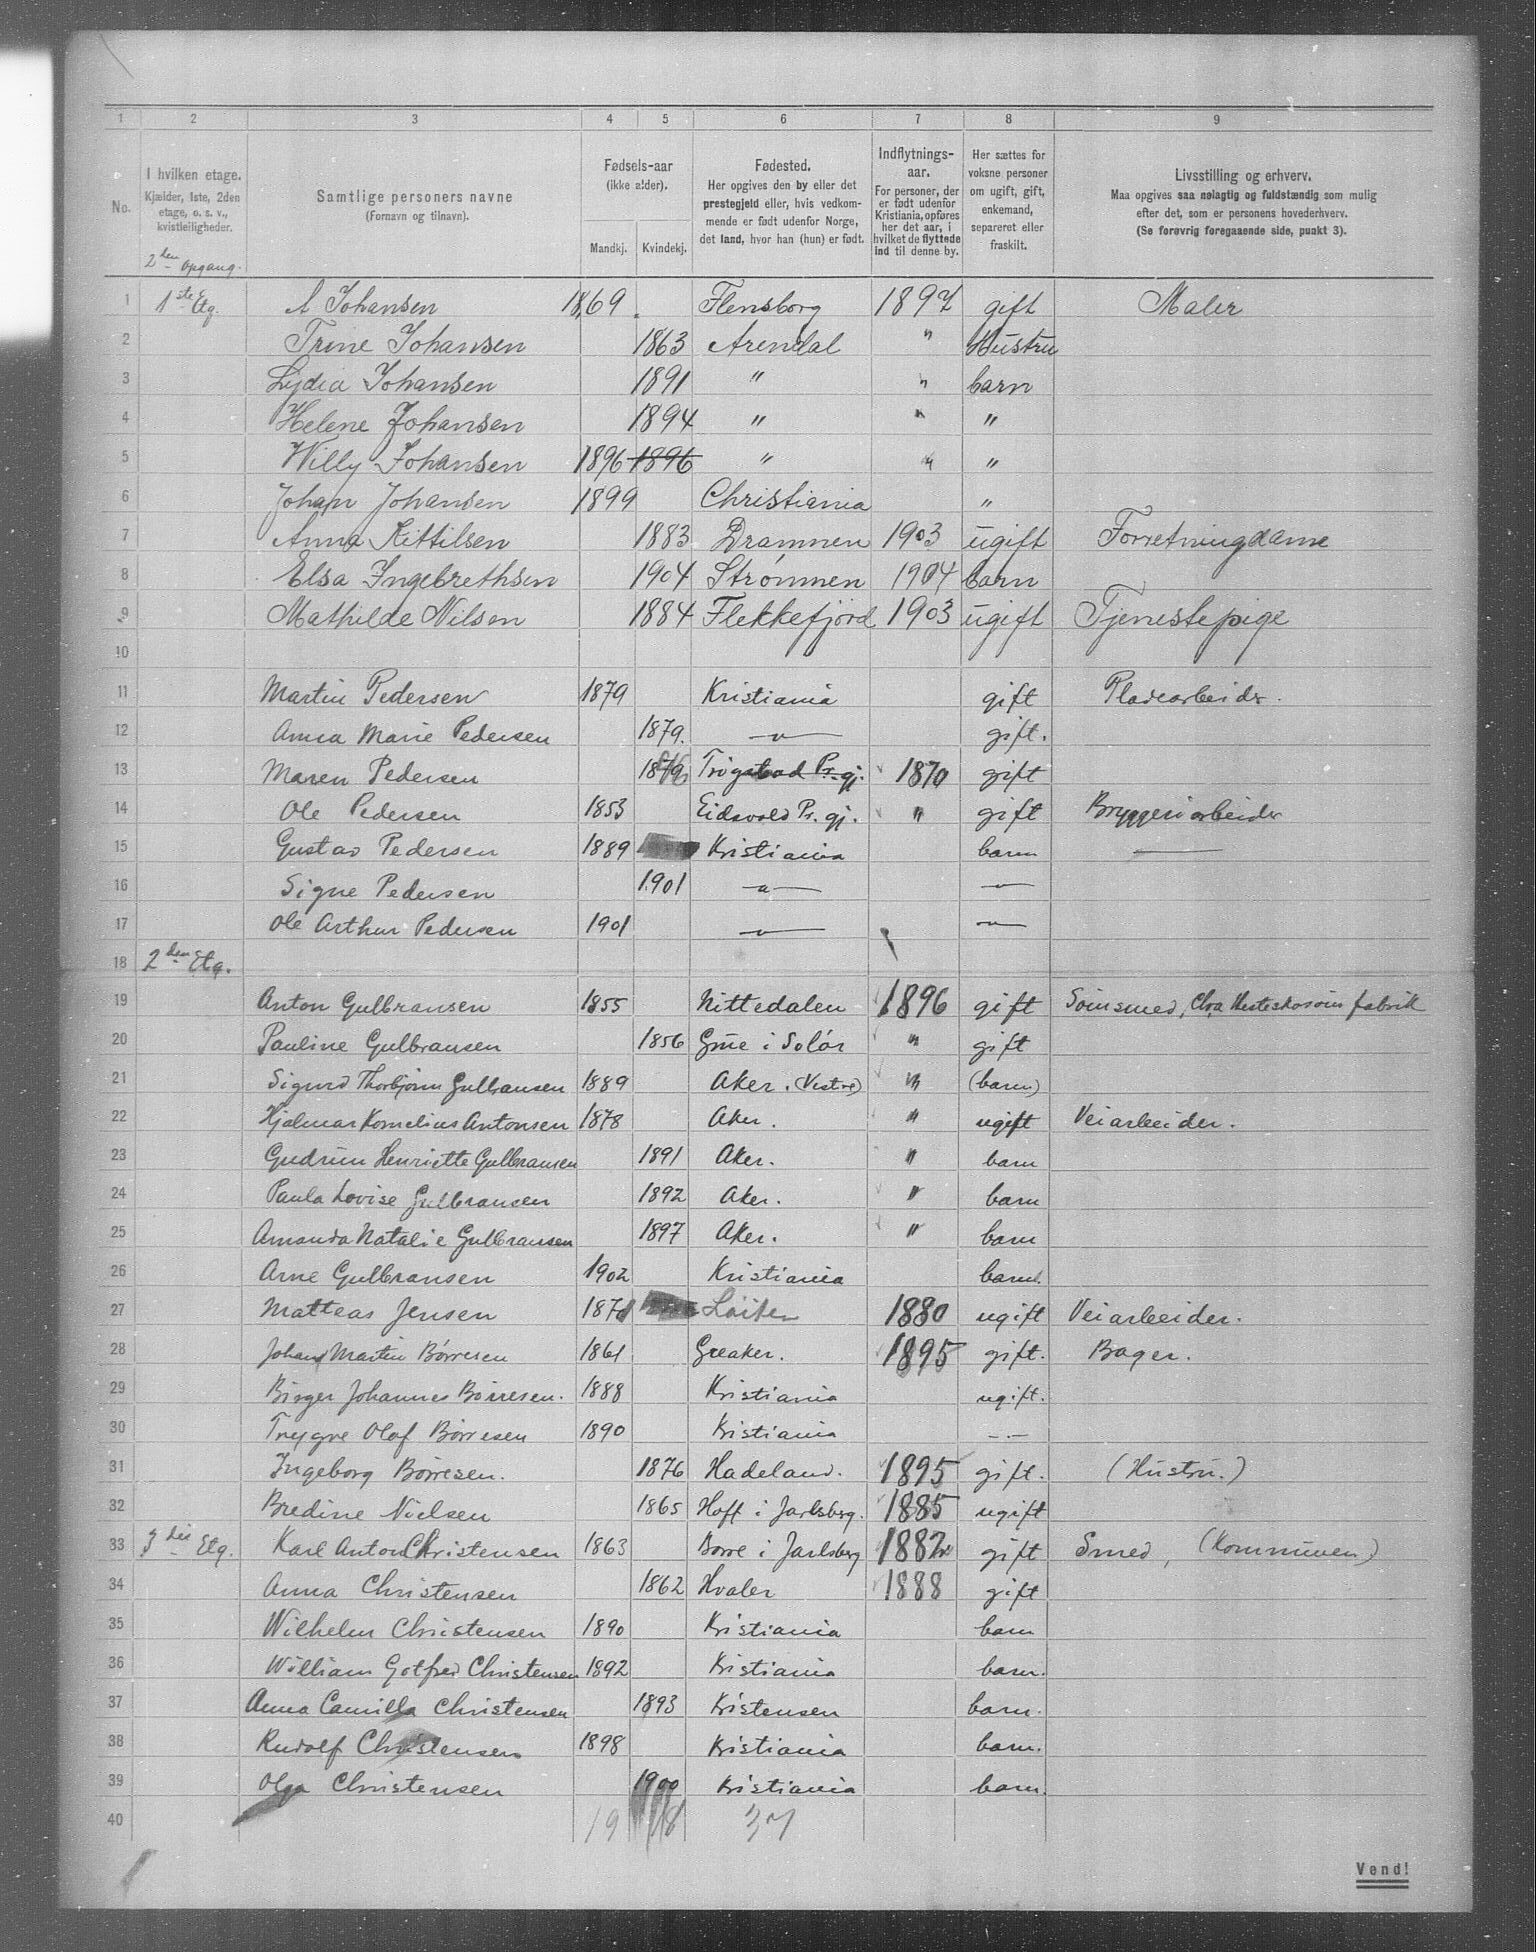 1 2 3 4 5 6 7 8 9
No.
I hvilken etage.
Kjælder, 1ste, 2den
etage, o. s. v.,
kvistleiligheder.
Samtlige personers navne
(Fornavn og tilnavn).
Fødsels-aar
(ikke alder).
Mandkj. Kvindekj.
Fødested.
Her opgives den by eller det
prestegjeld eller, hvis vedkom-
mende er født udenfor Norge,
det land, hvor han (hun) er født.
Indflytnings-
aar.
For personer, der
er født udenfor
Kristiania, opføres
her det aar, i
hvilket de flyttede
ind til denne by.
Her sættes for
voksne personer
om ugift, gift,
enkemand,
separeret eller
fraskilt.
Livsstilling og erhverv.
Maa opgives saa nøiagtig og fuldstændig som mulig
efter det, som er personens hovederhverv.
(Se forøvrig foregaaende side, punkt 3).
2den opgang.
1 1ste Etg. A Johansen 1869 Flensborg 1897 gift Maler
2 Trine Johansen 1863 Arendal " Hustru
3 Lydia Johansen 1891 " " barn
4 Helene Johansen 1894 " " "
5 Willy Johansen 1896 1896 " " "
6 Johan Johansen 1899 Christiania "
7 Anna Kittilsen 1883 Drammen 1903 ugift Forretningdame
8 Elsa Ingebrethsen 1904 Strømmen 1904 barn
9 Mathilde Nilsen 1884 Flekkefjörd 1903 ugift Tjenestepige
10
11 Martin Pedersen 1879 Kristiania gift Pladsearbeider.
12 Anna Marie Pedersen 1879. —"— gift.
13 Maren Pedersen Trøgstad Pr. gj. 1870 gift
14 Ole Pedersen 1853 Eidsvold Pr. gj. " gift Bryggeriarbeider
15 Gustav Pedersen 1889 Kristiania barn —
16 Signe Pedersen 1901 —"— —"—
17 Ole Arthur Pedersen 1901 —"— —"—
18 2den Etg.
19 Anton Gulbransen 1855 Nittedalen 1896 gift Sömsmed, Hesteskosöm fabrik
20 Pauline Gulbransen 1856 Grue i Solør " gift
21 Sigurd Thorbjörn Gulbransen 1889 Aker. (Vestre) " (barn)
22 Hjalmar Kornelius Antonsen 1878 Aker. " ugift Veiarbeider.
23 Gudrun Henriette Gulbransen 1891 Aker. " barn
24 Paula Lovise Gulbransen 1892 Aker. " barn
25 Amanda Natalie Gulbransen 1897 Aker. " barn
26 Arne Gulbransen 1902 Kristiania barn.
27 Matteas Jensen 1871 Löiten 1880 ugift Veiarbeider.
28 Johan Martin Børresen 1861 Greaker. 1895 gift. Bager.
29 Birger Johannes Børresen. 1888 Kristiania ugift.
30 Trygve Olaf Børresen 1890 Kristiania — —
31 Ingeborg Børresen. 1876 Hadeland. 1895 gift. (Hustru.)
32 Bredine Nielsen 1865 Hoff i Jarlsberg. 1885 ugift
33 3die Etg. Karl Anton Christensen 1863 Borre i Jarlsberg 1882 gift Smed, (Kommunen)
34 Anna Christensen 1862 Hvaler 1888 gift
35 Wilhelm Christensen 1890 Kristiania barn
36 William Gotfred Christensen 1892 Kristiania barn.
37 Anna Camilla Christensen 1893 Kristensen barn.
38 Rudolf Christensen 1898 Kristiania barn.
39 Olga Christensen 1900 Kristiania barn.
40 19 18 37
Vend!